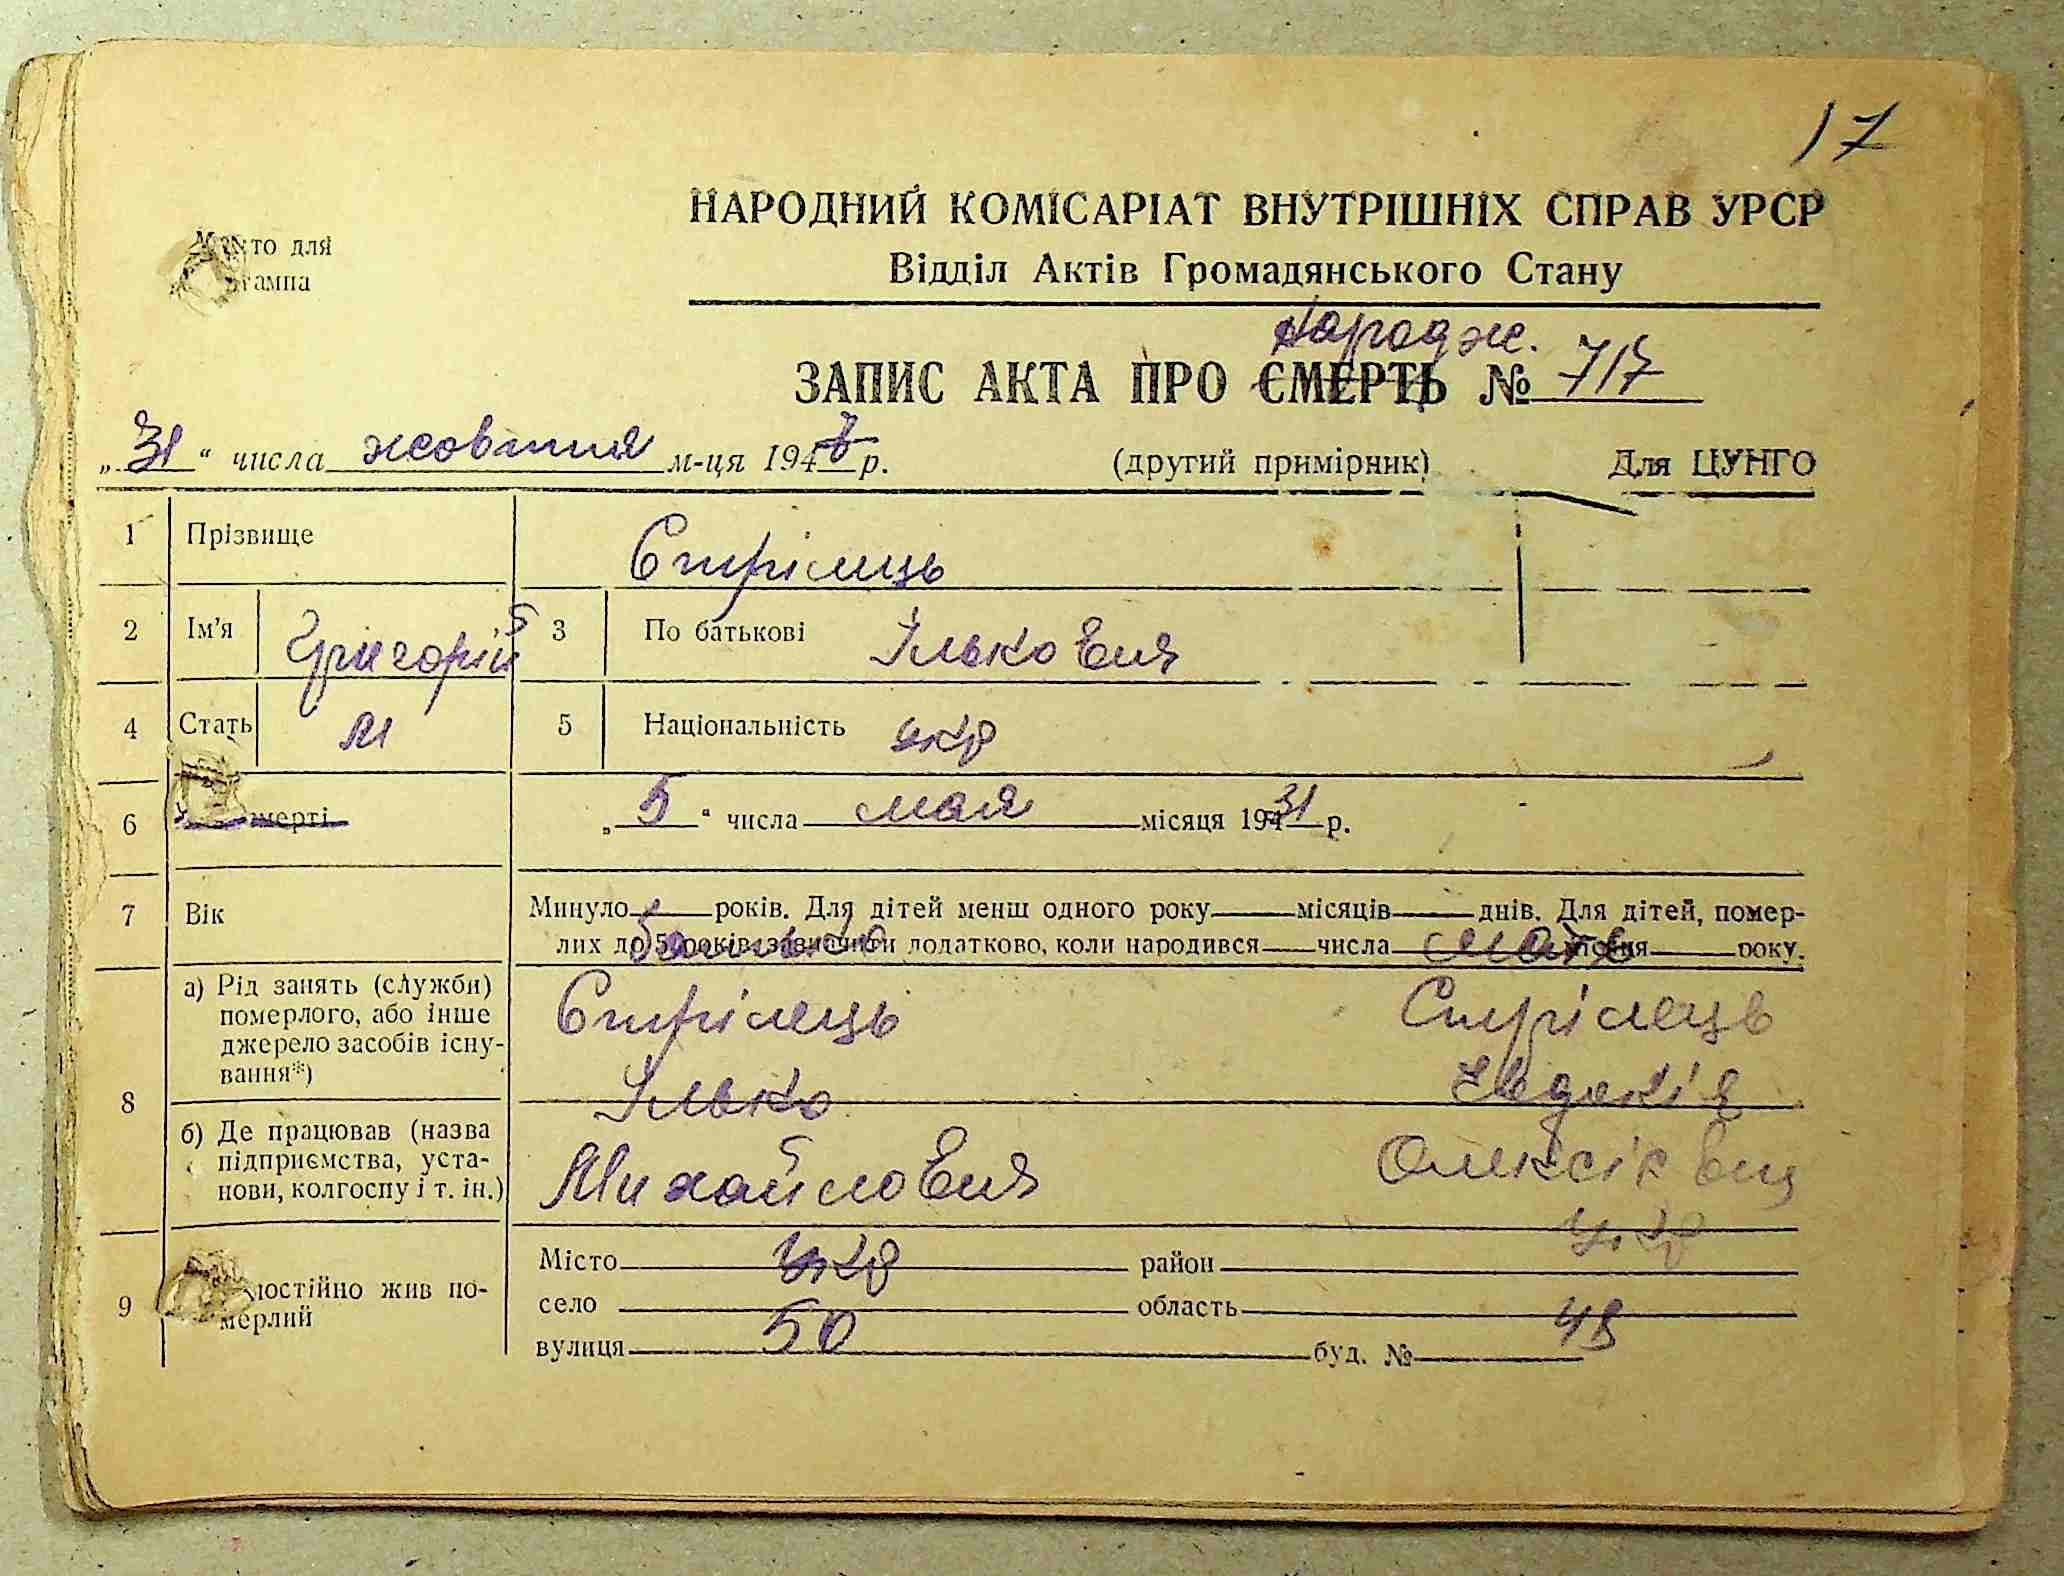 17
НАРОДНИЙ КОМІСАРІАТ ВНУТРІШНІХ СПРАВ УРСР
Місто для штампа
Відділ Актів Громадянського Стану
Народж.
ЗАПИС АКТА ПРО СМЕРТЬ № 717
„31“ числа жовтня м-ця 1947 р. (другий примірник) Для ЦУНГО
1 Прізвище Стрілець
2 Ім'я Григорій 3 По батькові Ількович
4 Стать М 5 Національність укр
6 смерті „5“ числа мая місяця 1931 р.
7 Вік Минуло року років. Для дітей менш одного року місяців днів. Для дітей, помер-
лих до 5 років, зазначити додатково, коли народився числа місяця року.
батько мать
8 а) Рід занять (служби) померлого, або інше джерело засобів існування*)
Стрілець Стрілець
Ілько Євдокія
б) Де працював (назва підприємства, установи, колгоспу і т. ін.)
Михайлович Олексіївн
9 постійно жив померлий
Місто укр район укр
село область
вулиця 50 буд. № 48